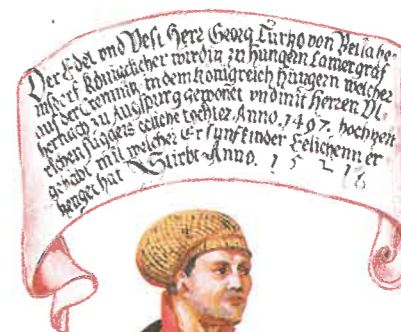 Der Edel vnd Vest Herr Georg Turzo von Betlahe
msdorf Königklicher wirdin zu Hungern Camergraf
auf der Cremnitz in dem Konigreich Hungern welcher
hernach zu Augspurg gewonet vnd mit Herren Vl
richen Fuggers eeliche tochter Anno. 1497. hochzeit
gehabt mit welcher Er funff kinder Eelichenn er
tzenget hat Stirbt Anno. 1521